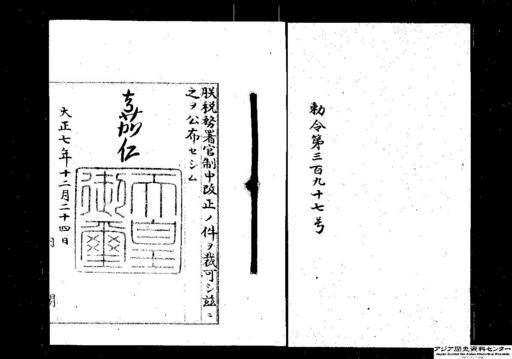 勅令第三百九十七号
朕税務署官制中改正ノ件ヲ裁可シ茲ニ
之ヲ公布セシム
嘉仁
天皇御璽
大正七年十二月二十四日
アジア歴史資料センター
Japan Center for Asian Historical Records